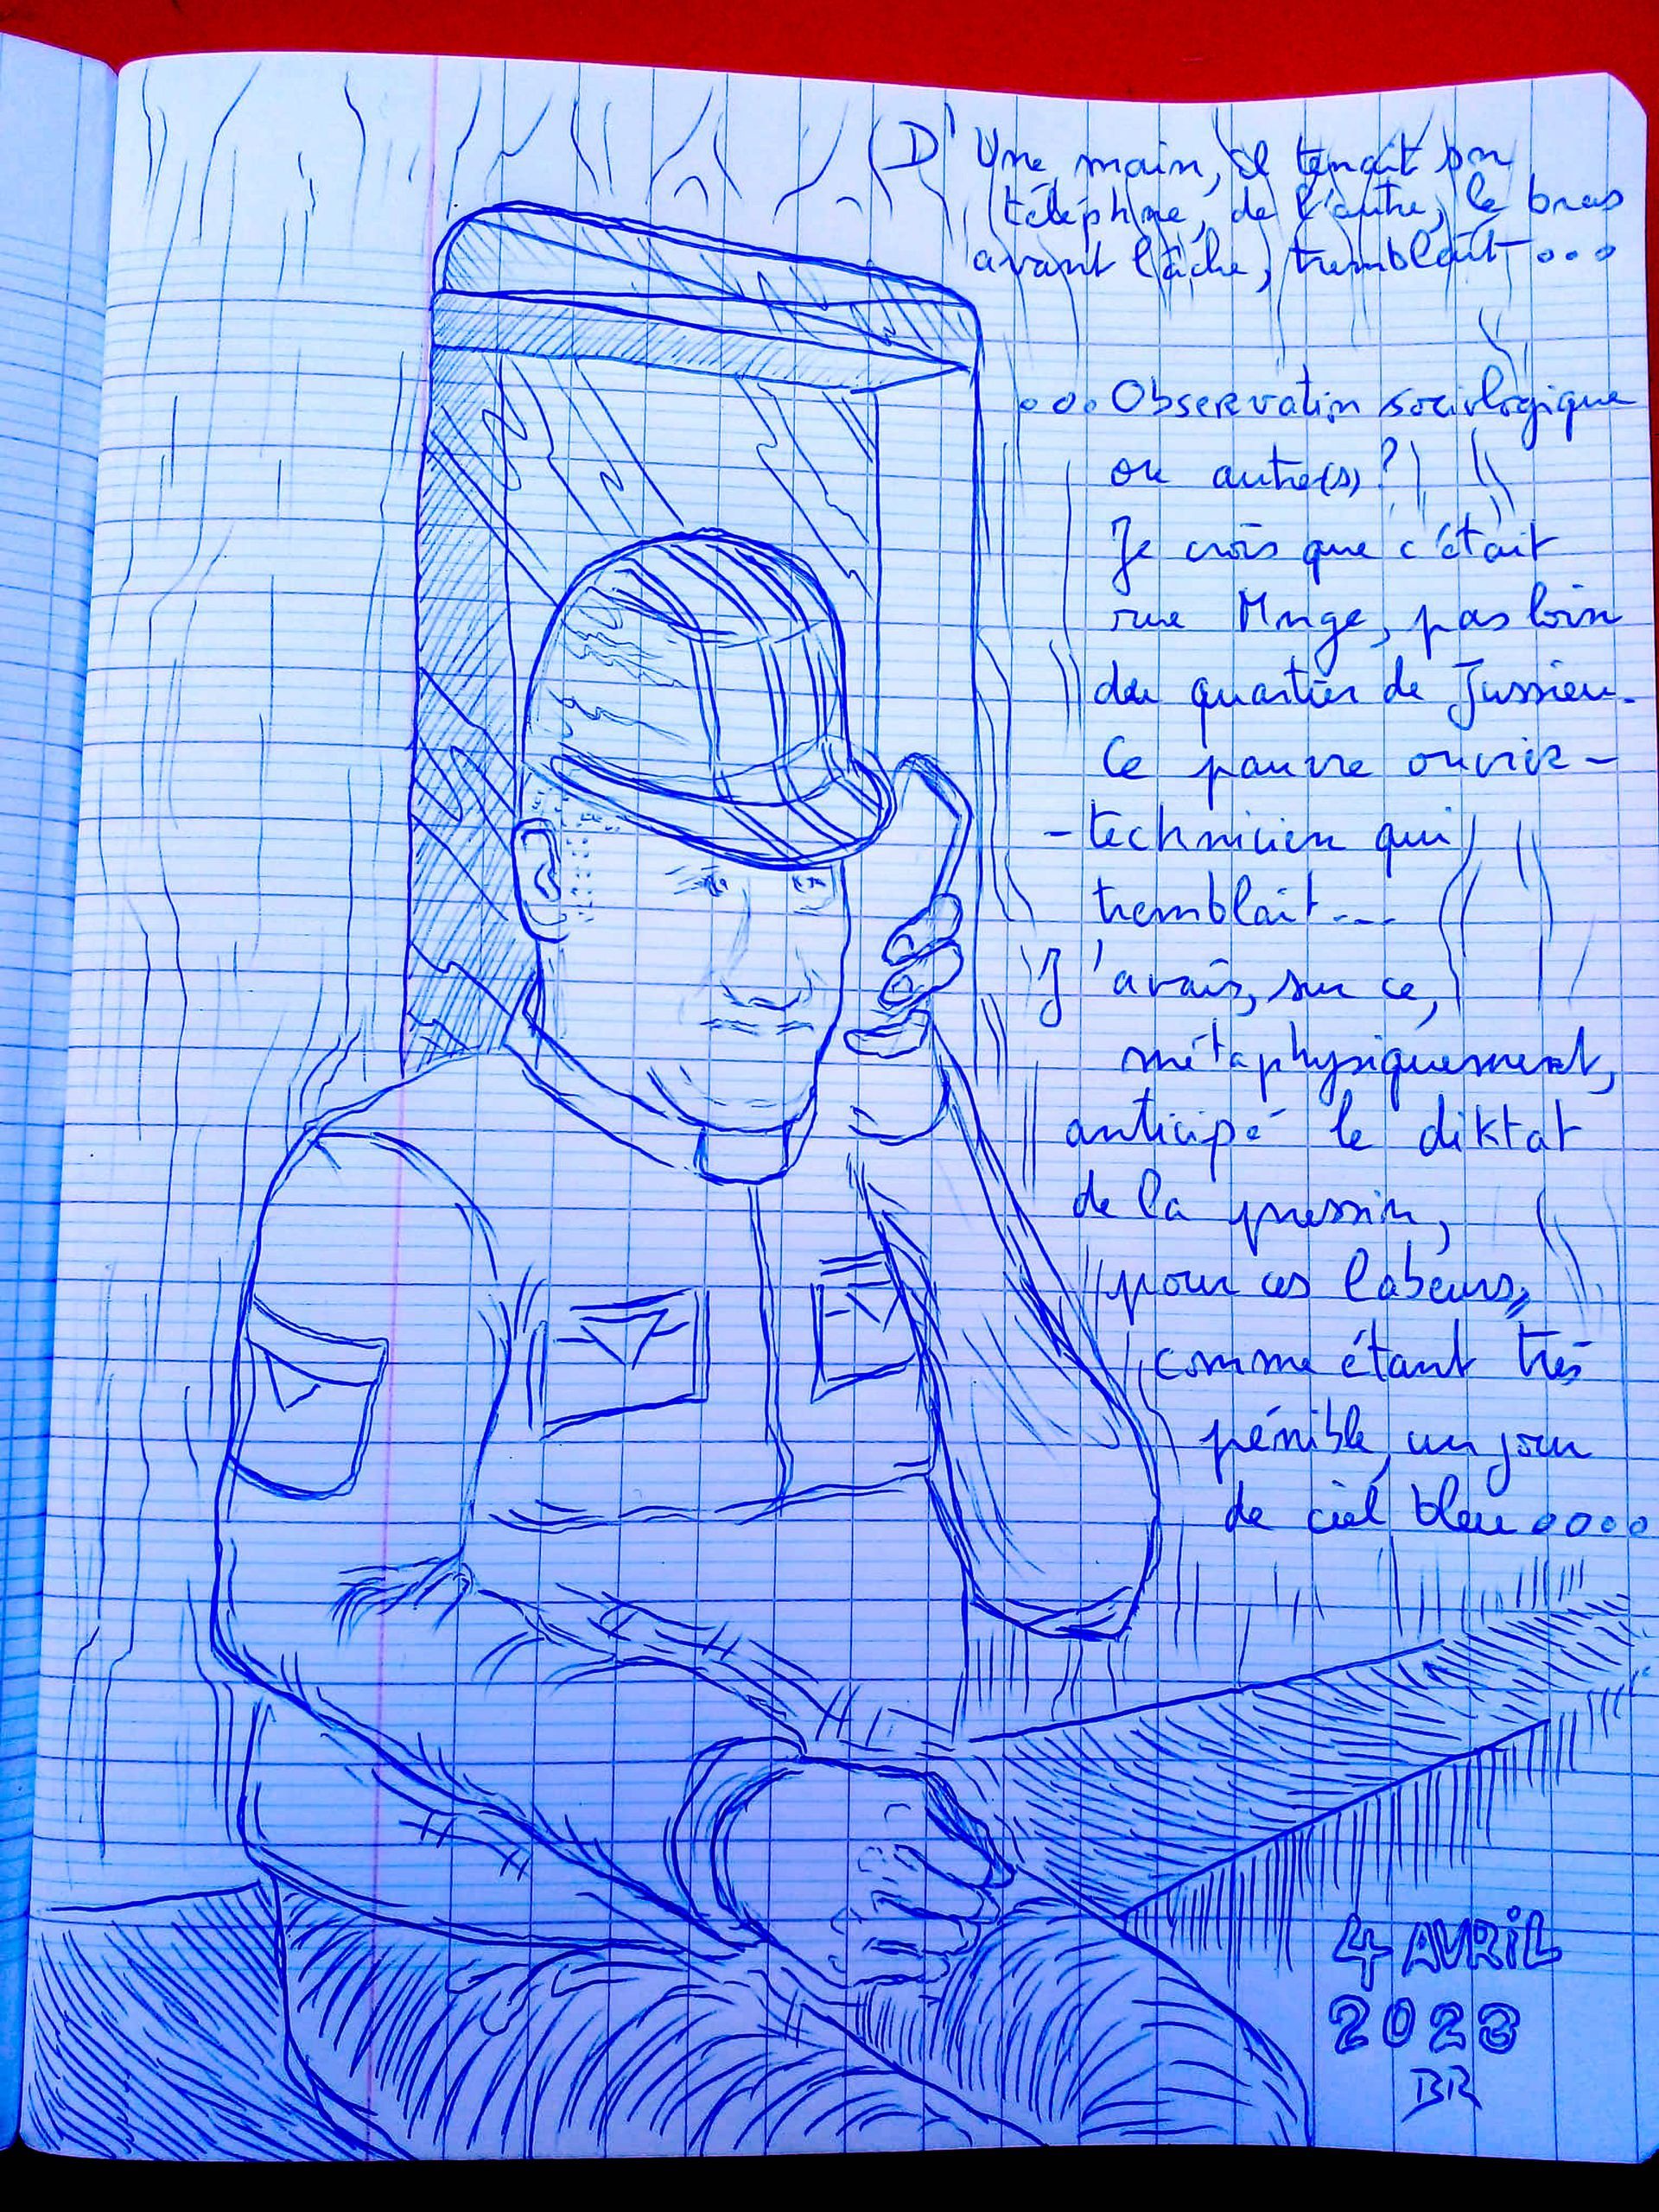 D'Une main, il tenait son
téléphone, de l'autre, le bras
avant lâche, tremblait...
...Observation sociologique
ou autre(s)?
Je crois que c'était
rue Monge, pas loin
du quartier de Jussieu.
Ce pauvre ouvrier-
-technicien qui
tremblait...
J'avais, sur ce,
métaphysiquement,
anticipé le diktat
de la pression,
pour ces labeurs,
comme étant très
pénible, un jour
de ciel bleu....
4 AVRiL
2023
BR